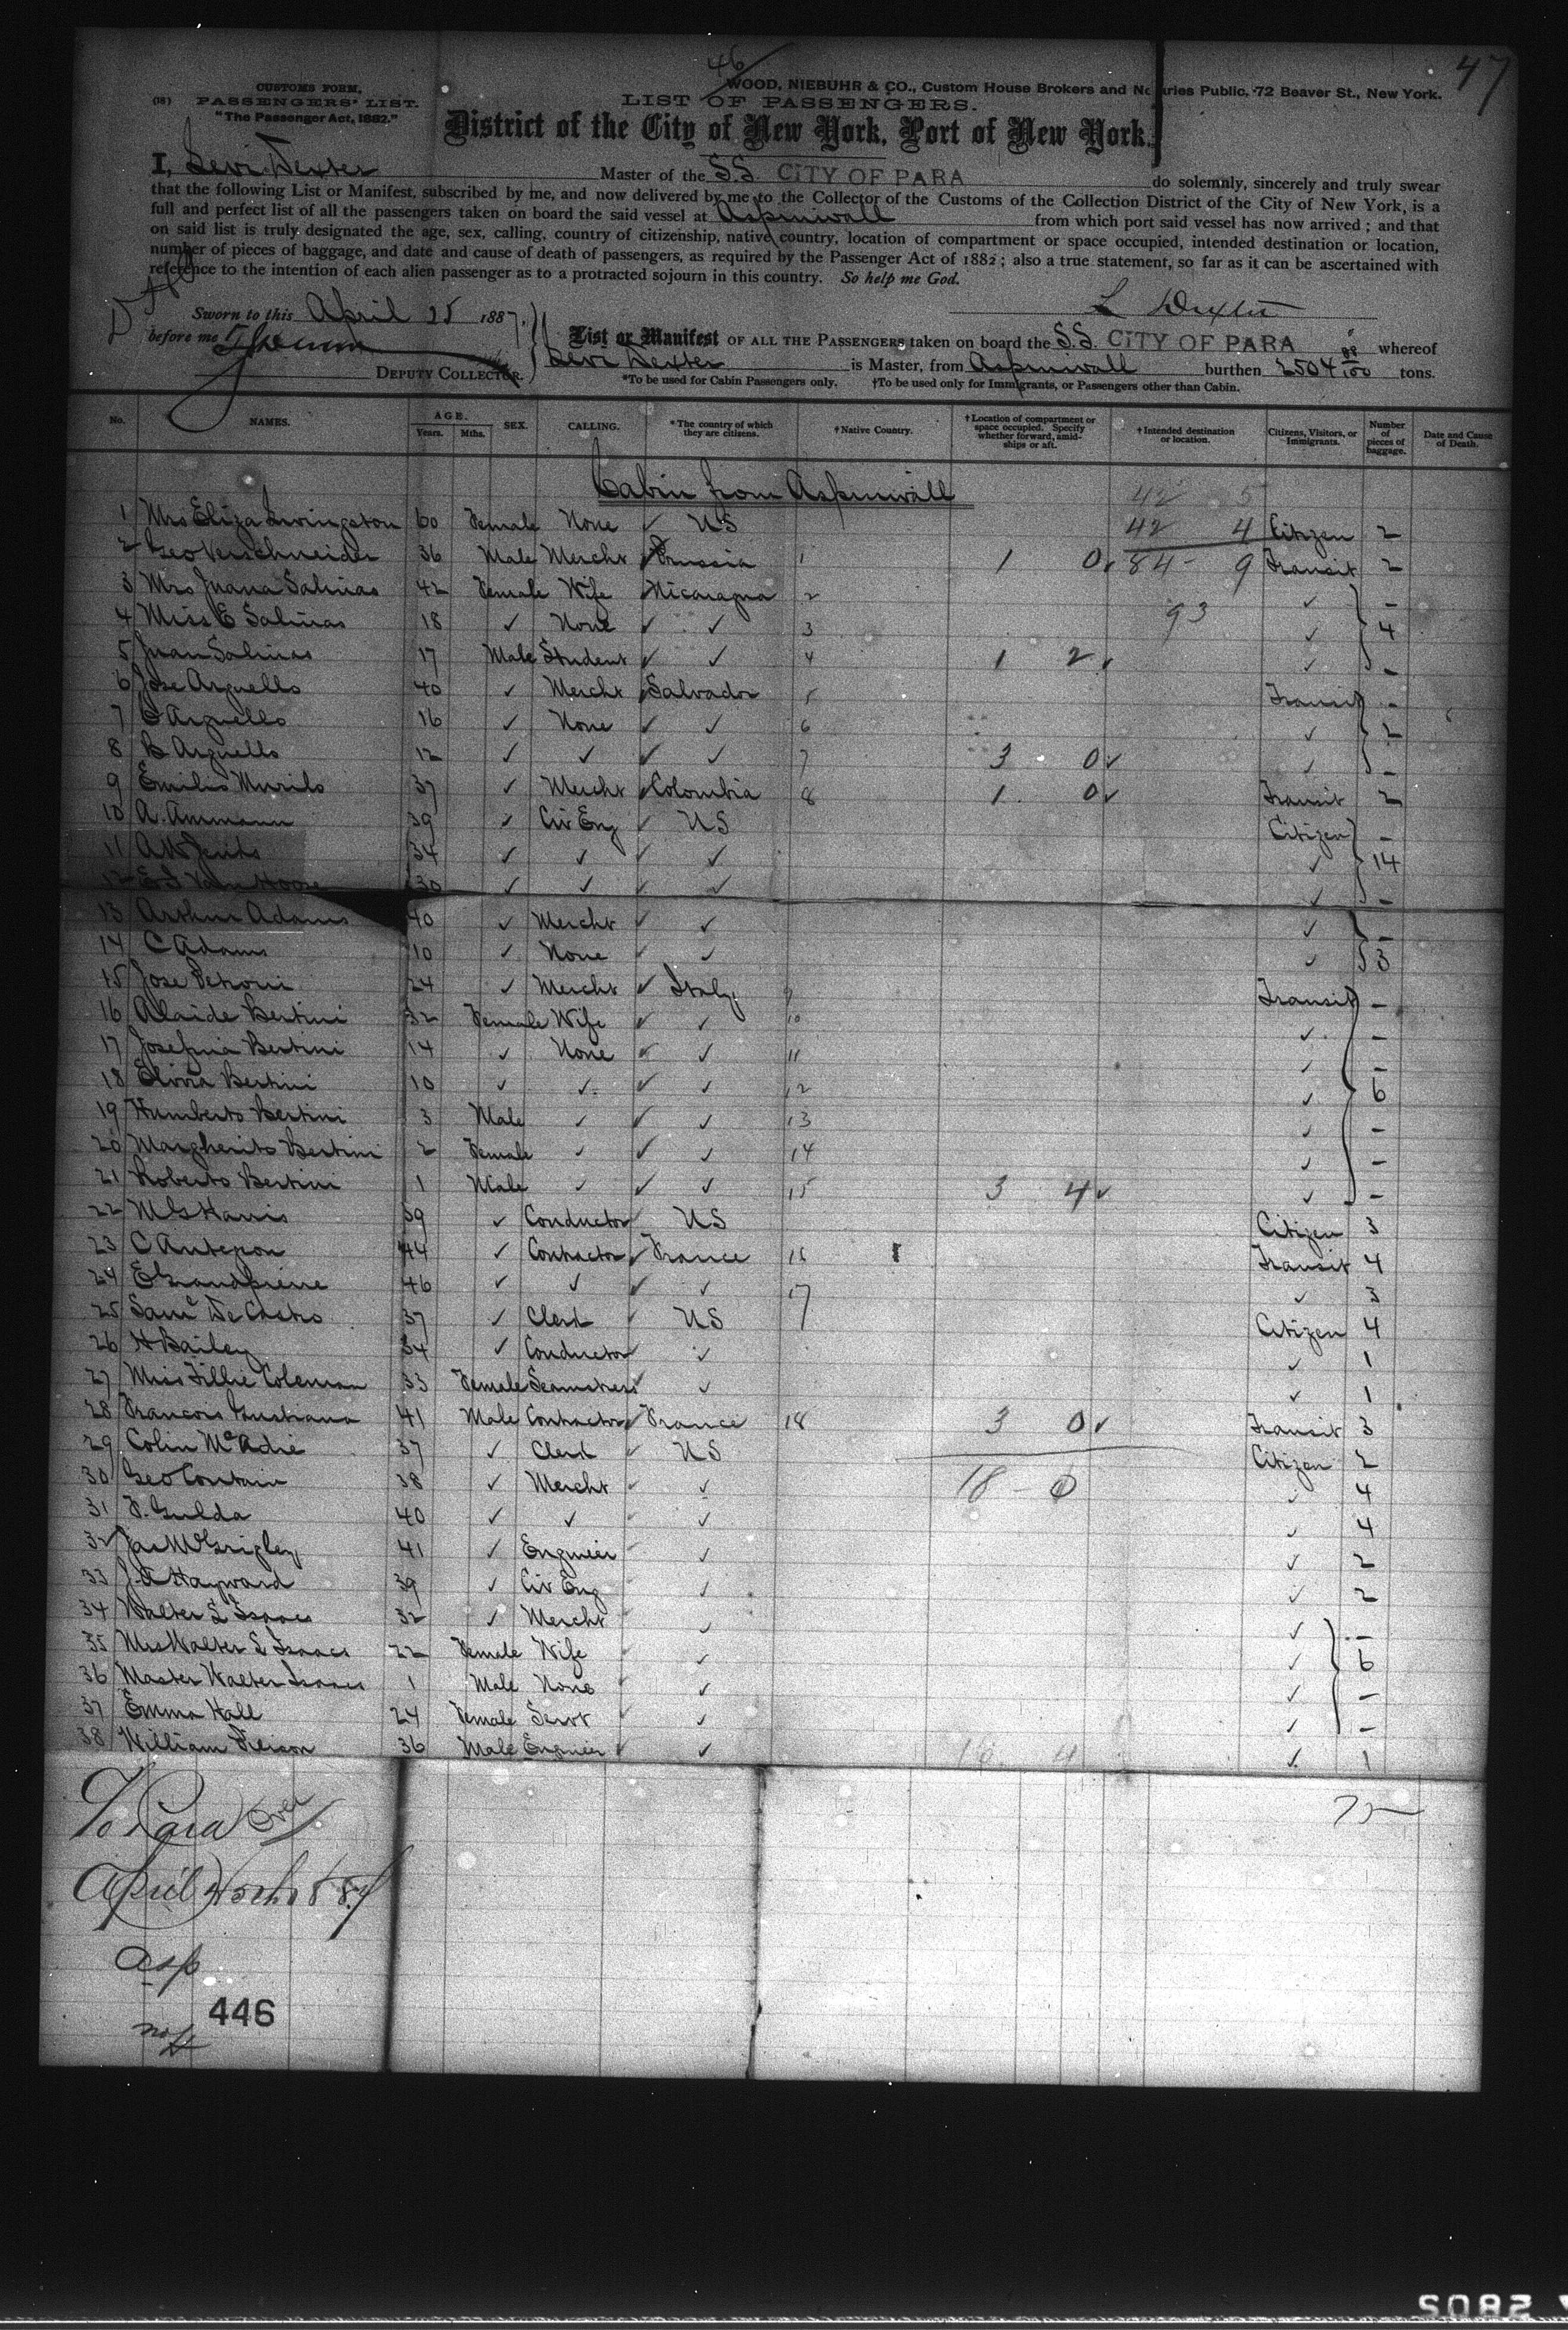 46
47
CUSTOMS FORM.
WOOD, NIEBUHR & CO., Custom House Brokers and Notaries Public, 72 Beaver St., New York.
PASSENGERS' LIST.
LIST OF PASSENGERS.
"The Passenger Act, 1882."
District of the City of New York, Port of New York.
I, Levi Dexter Master of the S.S. CITY OF PARA do solemnly, sincerely and truly swear
that the following List or Manifest, subscribed by me, and now delivered by me to the Collector of the Customs of the Collection District of the City of New York, is a
full and perfect list of all the passengers taken on board the said vessel at Aspinwall from which port said vessel has now arrived; and that
on said list is truly designated the age, sex, calling, country of citizenship, native country, location of compartment or space occupied, intended destination or location,
number of pieces of baggage, and date and cause of death of passengers, as required by the Passenger Act of 1882; also a true statement, so far as it can be ascertained with
reference to the intention of each alien passenger as to a protracted sojourn in this country. So help me God.
Sworn to this April 25 1887. L Dexter
before me
List or Manifest OF ALL THE PASSENGERS taken on board the S.S. CITY OF PARA whereof
Levi Dexter is Master, from Aspinwall burthen 2504 88/100 tons.
DEPUTY COLLECTOR.
*To be used for Cabin Passengers only. †To be used only for Immigrants, or Passengers other than Cabin.
No. NAMES. AGE. Years. Mths. SEX. CALLING. *The country of which they are citizens. †Native Country. †Location of compartment or space occupied. Specify whether forward, amidships or aft. †Intended destination or location. Citizens, Visitors, or Immigrants. Number of pieces of baggage. Date and Cause of Death.
Cabin from Aspinwall 42 5
1 Mrs Eliza Livingston 60 Female None ✓ US 42 4 Citizen 2
2 Geo Verschneider 36 Male Mercht Prussia 1 1 0✓ 84 - 9 Transit 2
3 Mrs Juana Salinas 42 Female Wife Nicaragua 2 ✓ –
4 Miss E Salinas 18 ✓ None ✓ ✓ 3 93 ✓ 4
5 Juan Salinas 17 Male Student ✓ ✓ 4 1 2✓ ✓ –
6 Jose Arguello 40 ✓ Mercht Salvador 5 Transit –
7 Arguello 16 ✓ None ✓ ✓ 6 ✓ 2
8 B Arguello 12 ✓ ✓ ✓ ✓ 7 3 0✓ ✓ –
9 Emilio Murilo 37 ✓ Mercht Colombia 8 1 0✓ Transit 2
10 A. Ammann 39 ✓ Civ Eng ✓ US Citizen –
11 A W 34 ✓ ✓ ✓ ✓ ✓ 14
12 Van Hoose 30 ✓ ✓ ✓ ✓ ✓ –
13 Arthur Adams 40 ✓ Mercht ✓ ✓ ✓ –
14 C Adams 10 ✓ None ✓ ✓ ✓ 3
15 Jose Petroni 24 ✓ Mercht ✓ Italy 9 Transit –
16 Alaide Bertini 32 Female Wife ✓ ✓ 10 ✓ –
17 Josefina Bertini 14 ✓ None ✓ ✓ 11 ✓ –
18 Elvira Bertini 10 ✓ ✓ ✓ ✓ 12 ✓ 6
19 Humberto Bertini 3 Male ✓ ✓ ✓ 13 ✓ –
20 Margherita Bertini 2 Female ✓ ✓ ✓ 14 ✓ –
21 Roberto Bertini 1 Male ✓ ✓ ✓ 15 3 4✓ ✓ –
22 M G Harris 39 ✓ Conductor US Citizen 3
23 C 44 ✓ Contractor ✓ France 16 Transit 4
24 E Grandpierre 46 ✓ ✓ ✓ ✓ 17 ✓ 3
25 Saml De Castro 37 ✓ Clerk ✓ US Citizen 4
26 H Bailey 34 ✓ Conductor ✓ ✓ 1
27 Miss Tillie Coleman 33 Female Seamstress ✓ ✓ 1
28 Francois 41 Male Contractor France 18 3 0✓ Transit 3
29 Colin McAdie 37 ✓ Clerk ✓ US Citizen 2
30 Geo 38 ✓ Mercht ✓ ✓ 18 - 0 ✓ 4
31 F. Gulda 40 ✓ ✓ ✓ ✓ 4
32 Jas 41 ✓ Engineer ✓ ✓ 2
33 J. A Hayward 39 ✓ Civ Eng ✓ ✓ 2
34 Walter L Isaacs 32 ✓ Mercht ✓ ✓ –
35 Mrs Walter L Isaacs 22 Female Wife ✓ ✓ 6
36 Master Walter Isaacs 1 Male None ✓ ✓ –
37 Emma Hall 24 Female Servt ✓ ✓ –
38 William Pierson 36 Male Engineer ✓ ✓ 16 4 ✓ 1
75
C/o Para Over
April 25th 1887
Asp
446